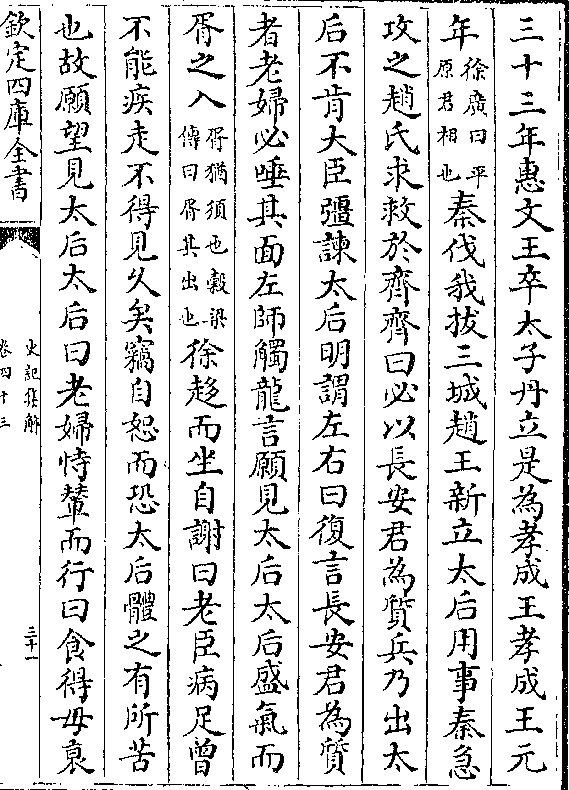 三十三年惠文王卒太子丹立是為孝成王孝成王元
年徐廣曰平原君相也秦伐我拔三城趙王新立太后用事秦急
攻之趙氏求救於齊齊曰必以長安君為質兵乃出太
后不肯大臣彊諫太后明謂左右曰復言長安君為質
者老婦必唾其面左師觸龍言願見太后太后盛氣而
胥之入胥猶須也穀梁傳曰胥其出也徐趍而坐自謝曰老臣病足曾
不能疾走不得見久矣竊自恕而恐太后體之有所苦
也故願望見太后太后曰老婦恃輦而行曰食得毋衰
欽定四庫全書
史記集解
卷四十三
三十一